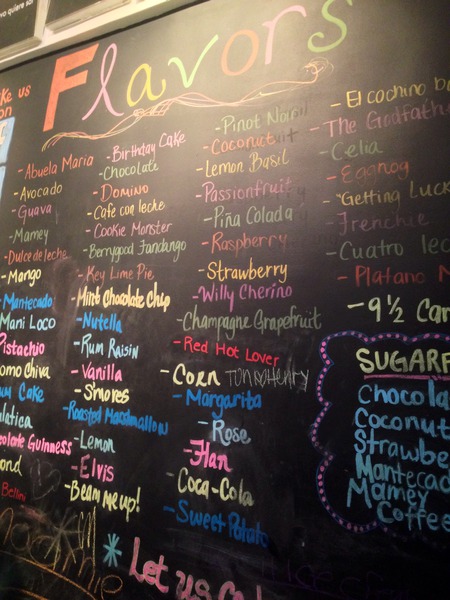 Flavors
ke us
on
-Abuela Maria
-Avocado
-Guava
-Mamey
-Dulce de leche
-Mango
-Mantecado
Mani Loco
Pistachio
omo Chiva
um Cake
latica
colate Guinness
ond
Bellini
-Birthday Cake
-Chocolate
-Domino
-Cafe con leche
-Cookie Monster
-Berrygood Fandango
-Key Lime Pie
-Mint Chocolate Chip
-Nutella
-Rum Raisin
-Vanilla
-S'mores
-Roasted Marshmallow
-Lemon
-Elvis
-Beam me up!
-Pinot Noir
-Coconut
-Lemon Basil
-Passionfruit
-Piña Colada
-Raspberry
-Strawberry
-Willy Cherino
-Champagne Grapefruit
-Red Hot Lover
-Corn
-Margarita
-Rose
-Flan
-Coca-Cola
-Sweet Potato
-El cochino b
-The Godfathe
-Celia
-Eggnog
-"Getting Luck
-Frenchie
-Cuatro lec
-Platano M
-9½ Can
SUGARF
Chocola
Coconut
Strawbe
Mantecad
Mamey
Coffee
* Let us